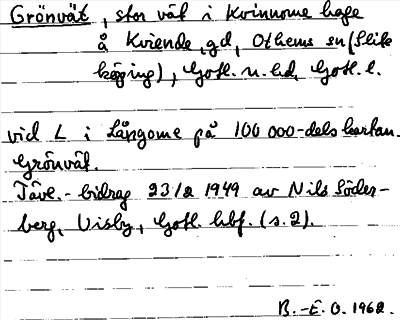 Grönvät, stor vät i Kvinnome hage
å Kviende, gd, Othems sn (Slite
köping), Gotl. n. hd, Gotl. l.
vid L i Långome på 100 000-dels kartan.
Grönvät.
Tävl.-bidrag 23/2 1949 av Nils Söder-
berg, Visby, Gotl. hbf. (s. 2).
B.-E. O. 1962.